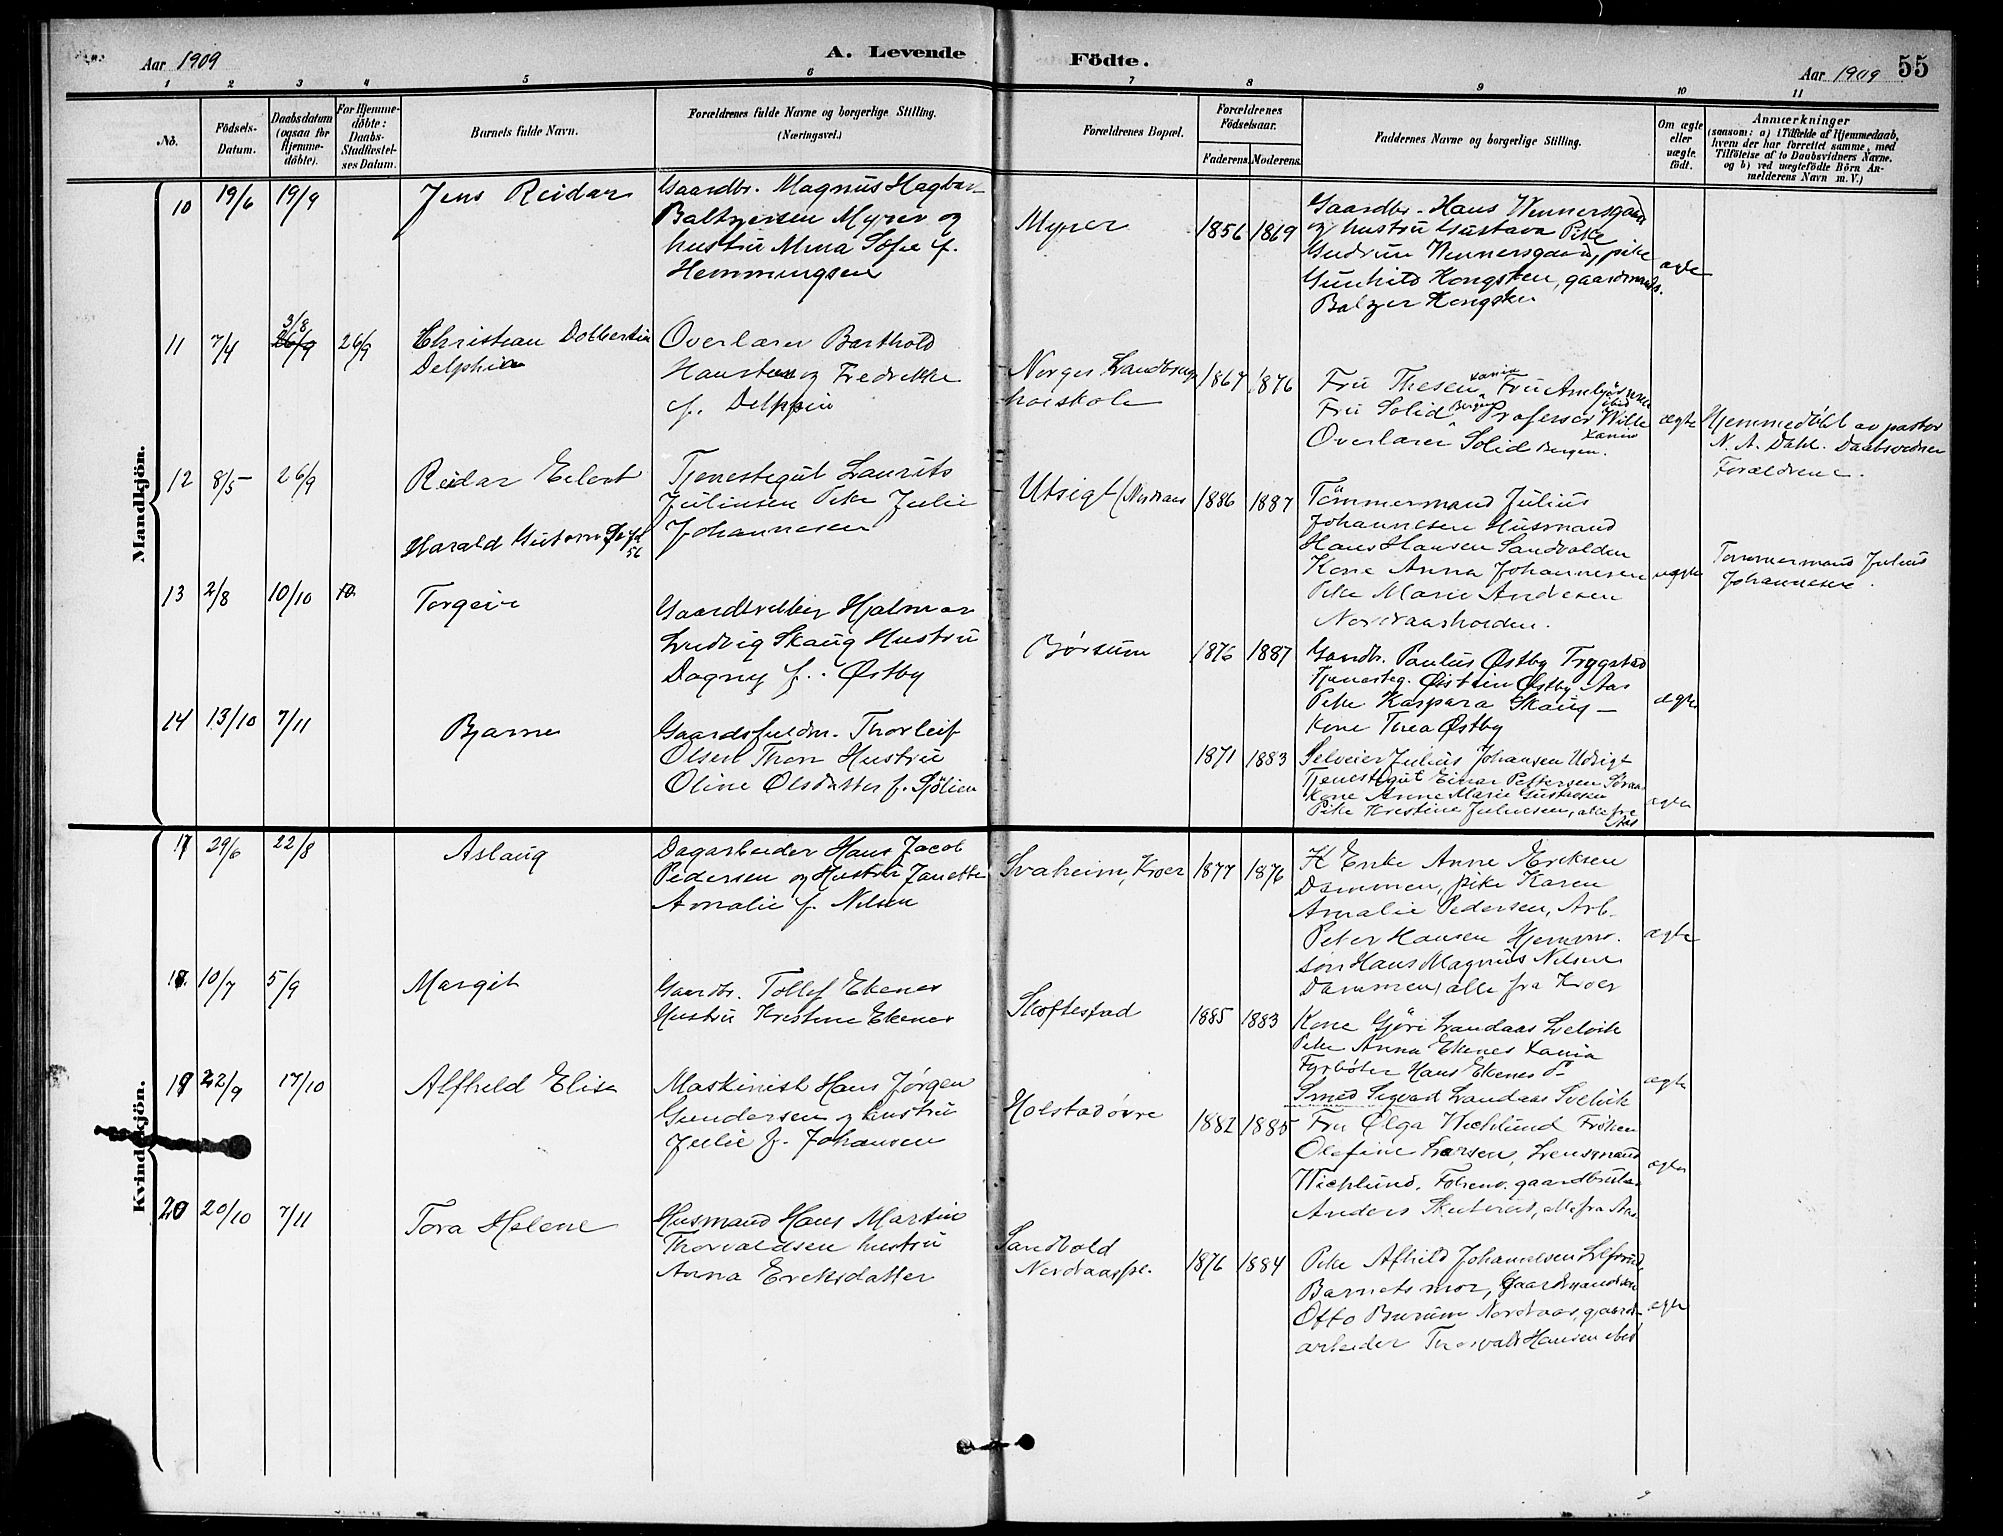 Aar 1909
A. Levende
Födte.
Aar 1909
55
1 2 3 4 5 6 7 8 9 10 11
No.
Födsels-Datum.
Daabsdatum (ogsaa for Hjemme-döbte).
For Hjemme-döbte: Daabs-Stadfæstel-ses Datum.
Barnets fulde Navn.
Forældrenes fulde Navne og borgerlige Stilling.
(Næringsvei.)
Forældrenes Bopæl.
Forældrenes Födselsaar.
Faderens. Moderens.
Faddernes Navne og borgerlige Stilling.
Om ægte eller uægte födt.
Anmærkninger
(saasom: a) i Tilfælde af Hjemmedaab,
hvem der har forrettet samme, med
Tilföielse af to Daabsvidners Navne.
og b) ved uegtefödte Börn An-
melderens Navn m. V.)
Mandkjön.
10 19/6 19/9 Jens Reidar
Gaardbr. Magnus Hagbart
Baltzersen Myrer og
hustru Mina Sofie f.
Hemmingsen
Myrer 1856 1869
Gaardbr. Hans Wennersgaard
og hustru Gustava Pike
Gudrun Wennersgaard, pike
Gunhild Kongsten, gaardmands.
Balzer Kongsten
ægte
11 7/4 3/8 26/9 26/9 Christian Dolbertin
Delphin
Overlærer Barthold
Hansteen og Fredrikke
f. Delphin
Norges Landbrugs
høiskole 1867 1876
Fru Thesen Xania Fru
Fru Solid Bergen Professor Wille
Overlærer Solid Bergen. Xania
ægte
Hjemmedøbt av pastor
N. A. Dahl. Daabsvidner
Forældrene.
12 8/5 26/9 Reidar Eilert
Tjenestegut Laurits
Juliussen Pike Julie
Johannesen
Utsigt (Nordaas 1886 1887
Tømmermand Julius
Johannesen Husmand
Hans Hansen Sandvolden
Kone Anna Johannesen
Pike Marie Andersen
Nordaasholden.
uægte
Tømmermand Julius
Johannesen.
Harald Gutorm
13 2/8 10/10 10 Torgeir
Gaardbruker Hjalmar
Ludvig Skaug Hustru
Dagny f. Østby
Børsum 1876 1887
Gaardb. Paulus Østby Trygstad
Tjenesteg. Øistein Østby Aas
Pike Kaspara Skaug —
Kone Thea Østby
ægte
14 13/10 7/11 Bjarne
Gaardsfuldm. Thorleif
Olsen Thon Hustru
Oline Olsdatter f. Sjølien
1871 1883
Selveier Julius Johansen Udsigt
Tjenestegut Einar Pettersen
Kone Anne Marie Gustavsen
Pike Kristine Juliussen, alle fra
Aas
ægte
Kvindekjön.
17 29/6 22/8 Aslaug
Dagarbeider Hans Jacob
Pedersen og Hustru Janette
Amalie f. Nilsen
Svaheim, Kroer 1877 1876
Enke Anne Eriksen
Dammen, pike Karen
Amalie Pedersen, Arb.
Peter Hansen Hjemmv.
søn Hans Magnus Nilsen
Dammen, alle fra Kroer
ægte
18 10/7 5/9 Margit
Gaardbr. Tollef Ekenes
Hustru Kristine Ekenes
Skoftestad 1885 1883
Kone Gjøri Landaas Selvik
Pike Anna Ekenes Xania
Fyrbøter Hans Ekenes
Smed Sigvart Landaas Svelvik
ægte
19 22/9 17/10 Alfhild Elise
Maskinist Hans Jørgen
Gundersen og hustru
Julie f. Johansen
Holstad øvre 1882 1885
Fru Olga Wichlund Frøken
Olefine Larsen, Lensmand
Wichlund. gaardbruker
Anders Skuterud, alle fra Aas
ægte
20 20/10 7/11 Tora Helene
Husmand Hans Martin
Thorvaldsen hustru
Anna Eriksdatter
Sandvold
Nordaaspl. 1876 1884
Pike Alfhild Johannesen
Barnets mor, Gaardmandssøn
Otto Burum Nordaas, gaards-
arbeider Thorvald Hansen ibid
ægte